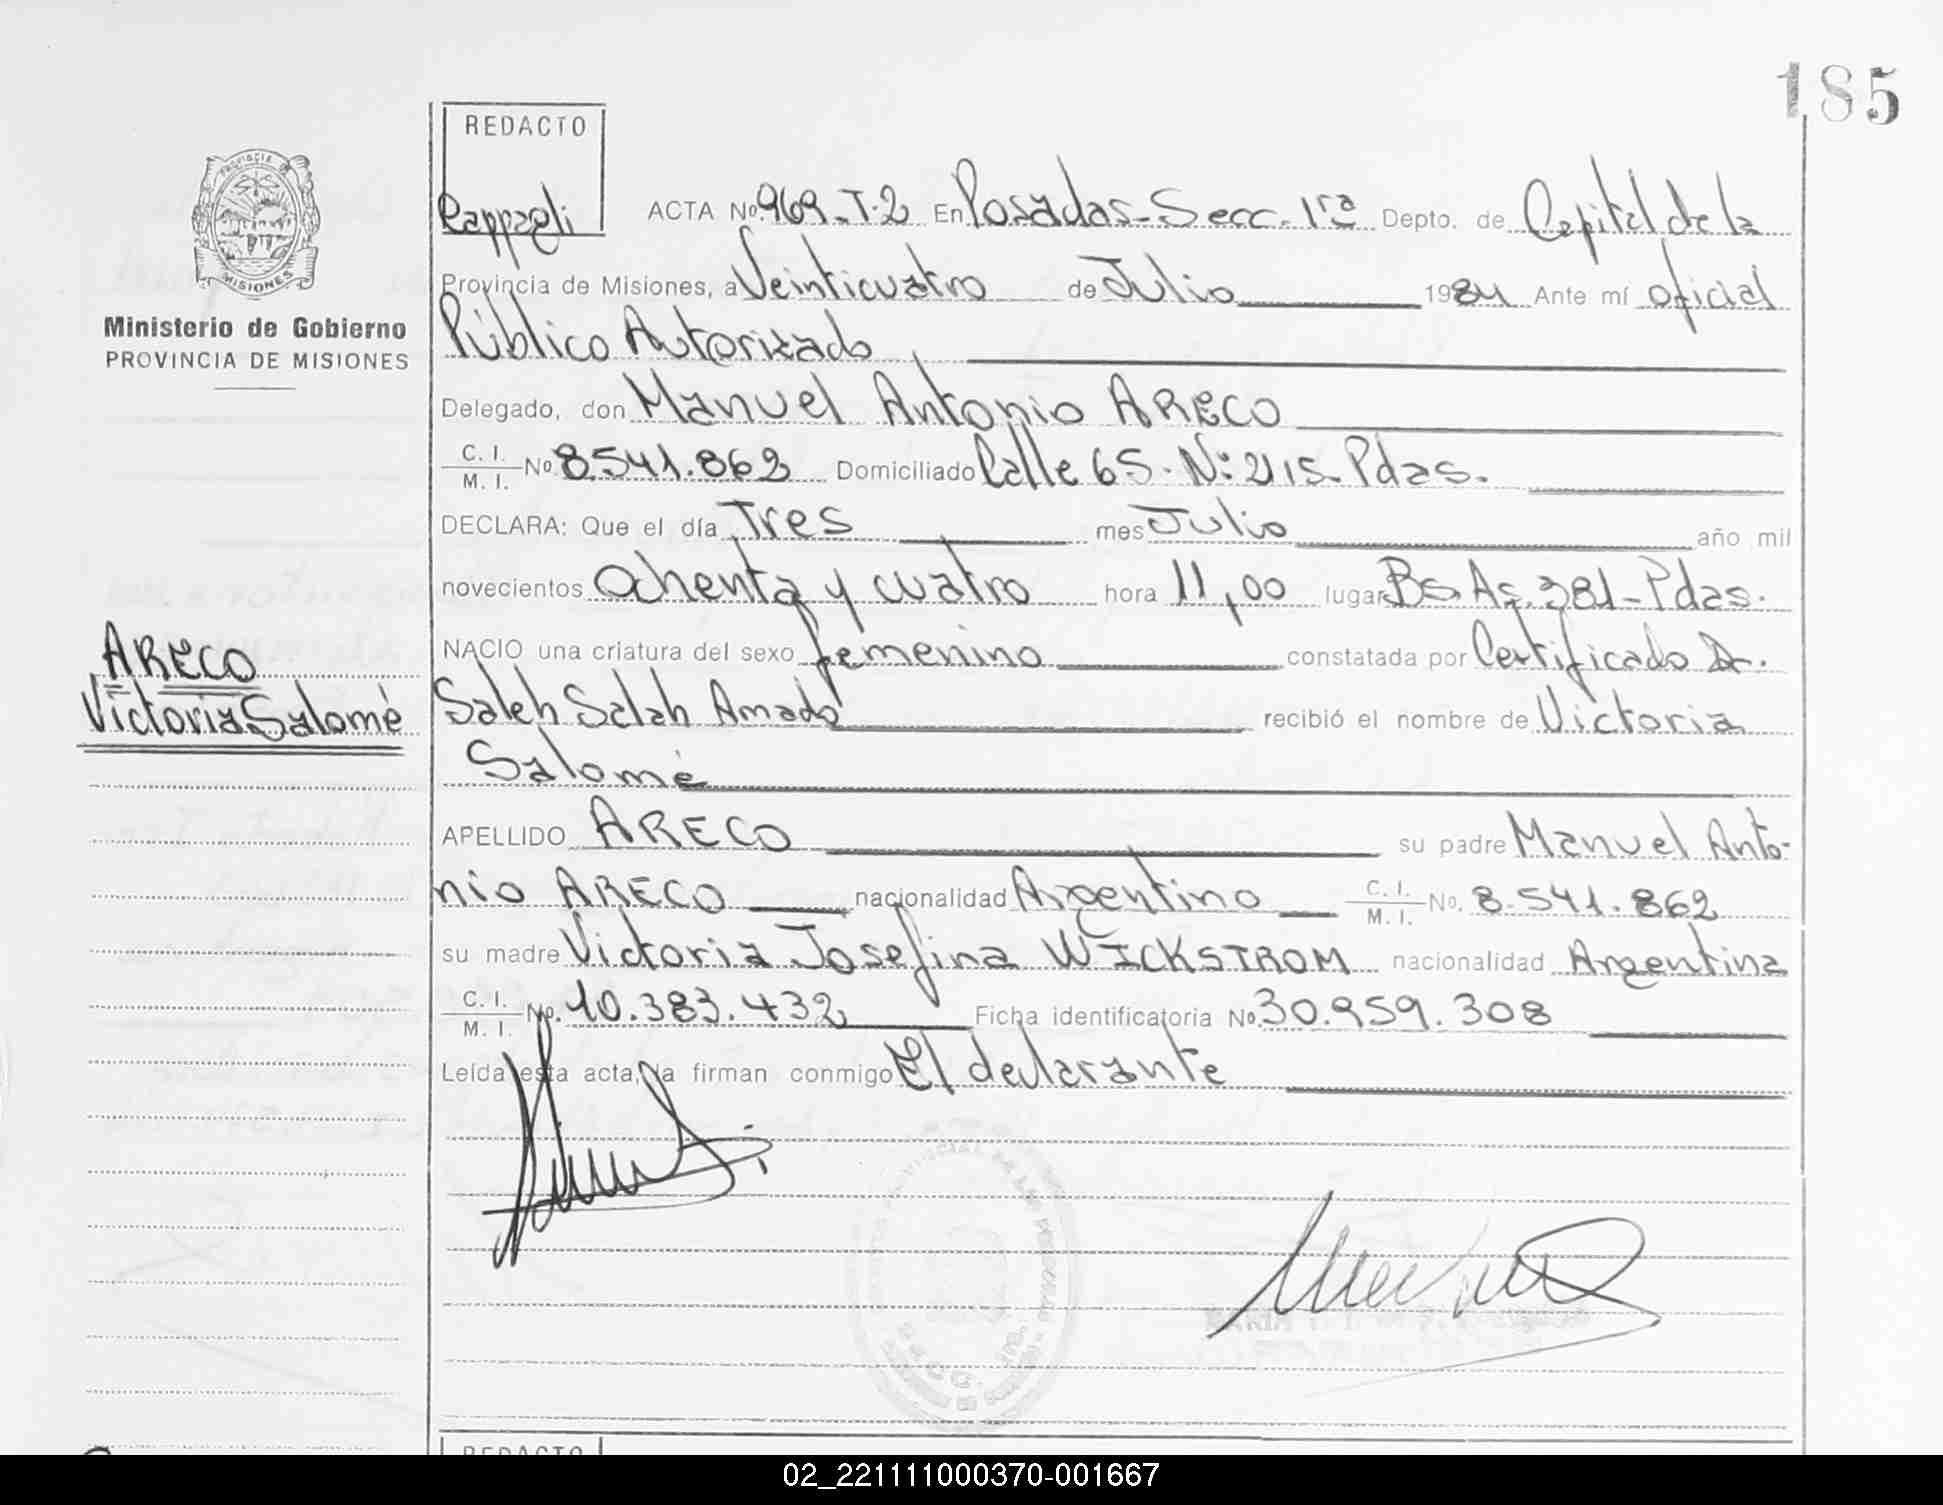 185
REDACTO
Rappagli
ACTA No. 969-T-2 En Posadas-Secc. 1ra Depto. de Capital de la
Provincia de Misiones, a Veinticuatro de Julio 1984 Ante mí oficial
Público Autorizado
Delegado, don Manuel Antonio ARECO
C. I. / M. I. No 8.541.862 Domiciliado Calle 65. N: 2115. Pdas.
DECLARA: Que el día Tres mes Julio año mil
novecientos ochenta y cuatro hora 11,00 lugar Bs. As. 381-Pdas.
NACIO una criatura del sexo femenino constatada por Certificado Dr.
Saleh Salah Amado recibió el nombre de Victoria
Salomé
APELLIDO ARECO su padre Manuel Anto-
nio ARECO nacionalidad Argentino C. I. / M. I. No. 8.541.862
su madre Victoria Josefina WICKSTROM nacionalidad Argentina
C. I. / M. I. No. 10.383.432 Ficha identificatoria No. 30.959.308
Leída esta acta, la firman conmigo El declarante
PROVINCIA DE
MISIONES
Ministerio de Gobierno
PROVINCIA DE MISIONES
ARECO
Victoria Salomé
REDACTO
02_221111000370-001667